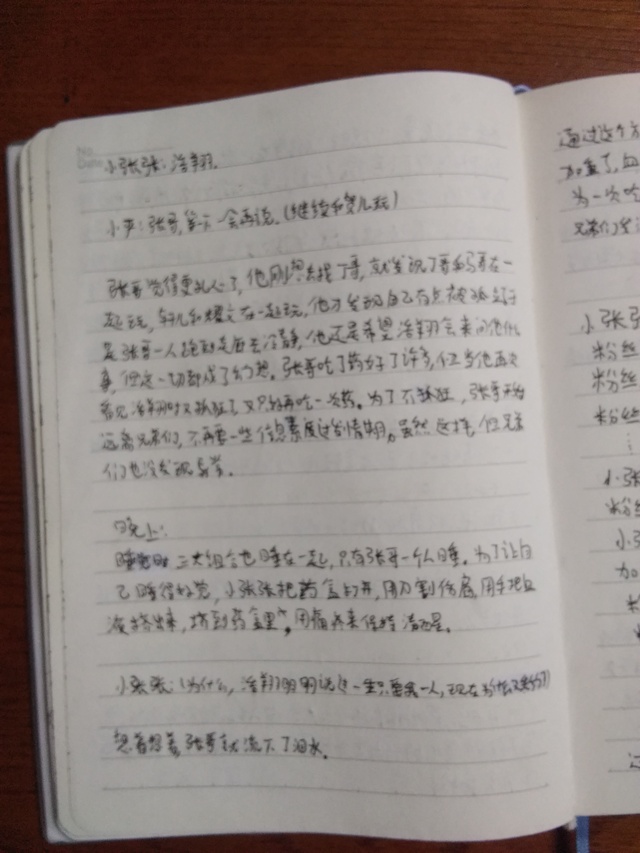 No.
Date
小张张:浩翔,
小声:张哥,等一会再说。(继续和贺儿玩)
张哥觉得更扎心了,他刚想去找丁哥,就发现丁哥和马哥在一
起玩,轩儿和耀文在一起玩,他才发现自己有点被孤立了
是张哥一人跑到房去冷静,他还是希望浩翔会来问他什么
事,但这一切都成了幻想。张哥吃了药好了许多,但当他再次
看见浩翔时又抓狂了又只好再吃一次药。为了不抓狂,张哥开始
远离兄弟们,不再要一些信息素度过发情期。虽然这样,但兄弟
们也没发现异常。
晚上:
三大组合也睡在一起,只有张哥一个人睡。为了让自
己睡得好觉,小张张把药盒打开,用刀割伤后,用手把血
液挤出来,挤到药盒里,用痛来保持清醒。
小张张:(为什么,浩翔明明说这一生只要我一人,现在为什么
想着想着,张哥就流下了泪水。
通过这个方
加重了,血
为一次吃
兄弟们发
小张张
粉丝
粉丝
粉丝
小张
粉丝
小张
加